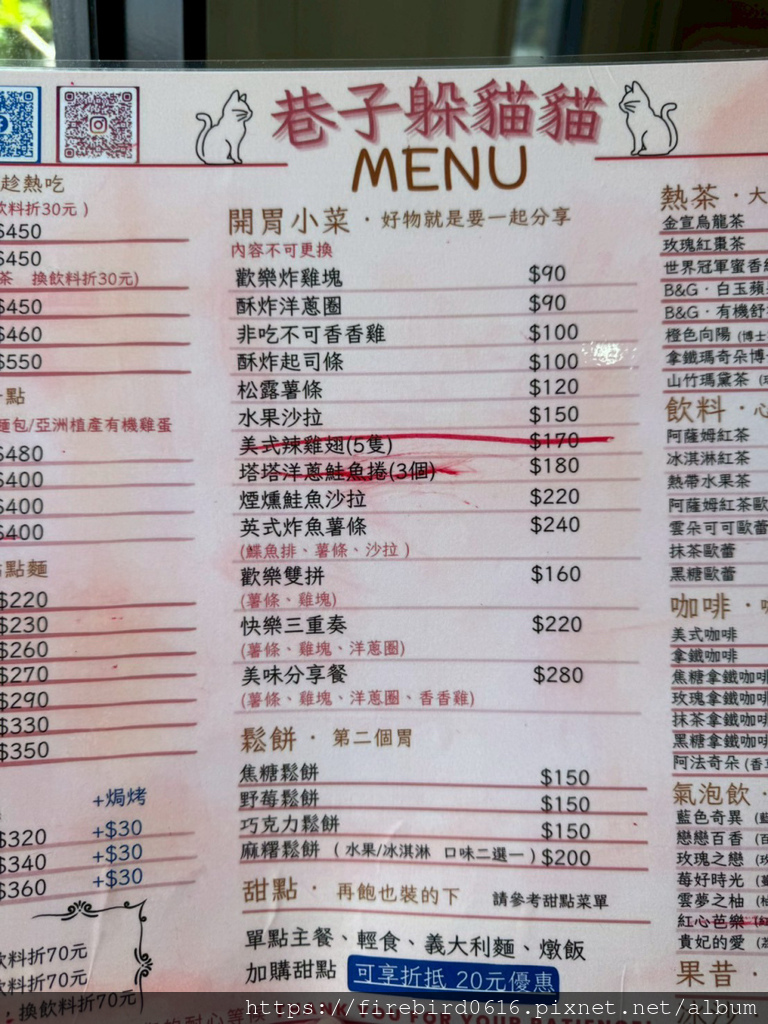 巷子躲貓貓
MENU
趁熱吃
飲料折30元 )
$450
$450
茶 換飲料折30元)
$450
$460
$550
點
麵包/亞洲植產有機雞蛋
$480
$400
$400
$400
點麵
$220
$230
$260
$270
$290
$330
$350
+焗烤
$320 +$30
$340 +$30
$360 +$30
飲料折70元
飲料折70元
換飲料折70元
開胃小菜 · 好物就是要一起分享
內容不可更換
歡樂炸雞塊 $90
酥炸洋蔥圈 $90
非吃不可香香雞 $100
酥炸起司條 $100
松露薯條 $120
水果沙拉 $150
美式辣雞翅(5隻) $170
塔塔洋蔥鮭魚捲(3個) $180
煙燻鮭魚沙拉 $220
英式炸魚薯條 $240
(鰈魚排、薯條、沙拉 )
歡樂雙拼 $160
(薯條、雞塊)
快樂三重奏 $220
(薯條、雞塊、洋蔥圈)
美味分享餐 $280
(薯條、雞塊、洋蔥圈、香香雞)
鬆餅 · 第二個胃
焦糖鬆餅 $150
野莓鬆餅 $150
巧克力鬆餅 $150
麻糬鬆餅 ( 水果/冰淇淋 口味二選一 ) $200
甜點 · 再飽也裝的下 請參考甜點菜單
單點主餐、輕食、義大利麵、燉飯
加購甜點 可享折抵 20元優惠
熱茶 · 大
金宣烏龍茶
玫瑰紅棗茶
世界冠軍蜜香
B&G · 白玉蘋
B&G · 有機舒
橙色向陽 (博士
拿鐵瑪奇朵博
山竹瑪黛茶
飲料 · 心
阿薩姆紅茶
冰淇淋紅茶
熱帶水果茶
阿薩姆紅茶歐
雲朵可可歐蕾
抹茶歐蕾
黑糖歐蕾
咖啡 ·
美式咖啡
拿鐵咖啡
焦糖拿鐵咖啡
玫瑰拿鐵咖啡
抹茶拿鐵咖啡
黑糖拿鐵咖啡
阿法奇朵 (香
氣泡飲 ·
藍色奇異 (藍
戀戀百香 (百
玫瑰之戀 (玫
莓好時光
雲夢之柚 (柚
紅心芭樂 (紅
貴妃的愛 (荔
果昔 ·
THANK YOU FOR YOUR PATIENCE
https://firebird0616.pixnet.net/album